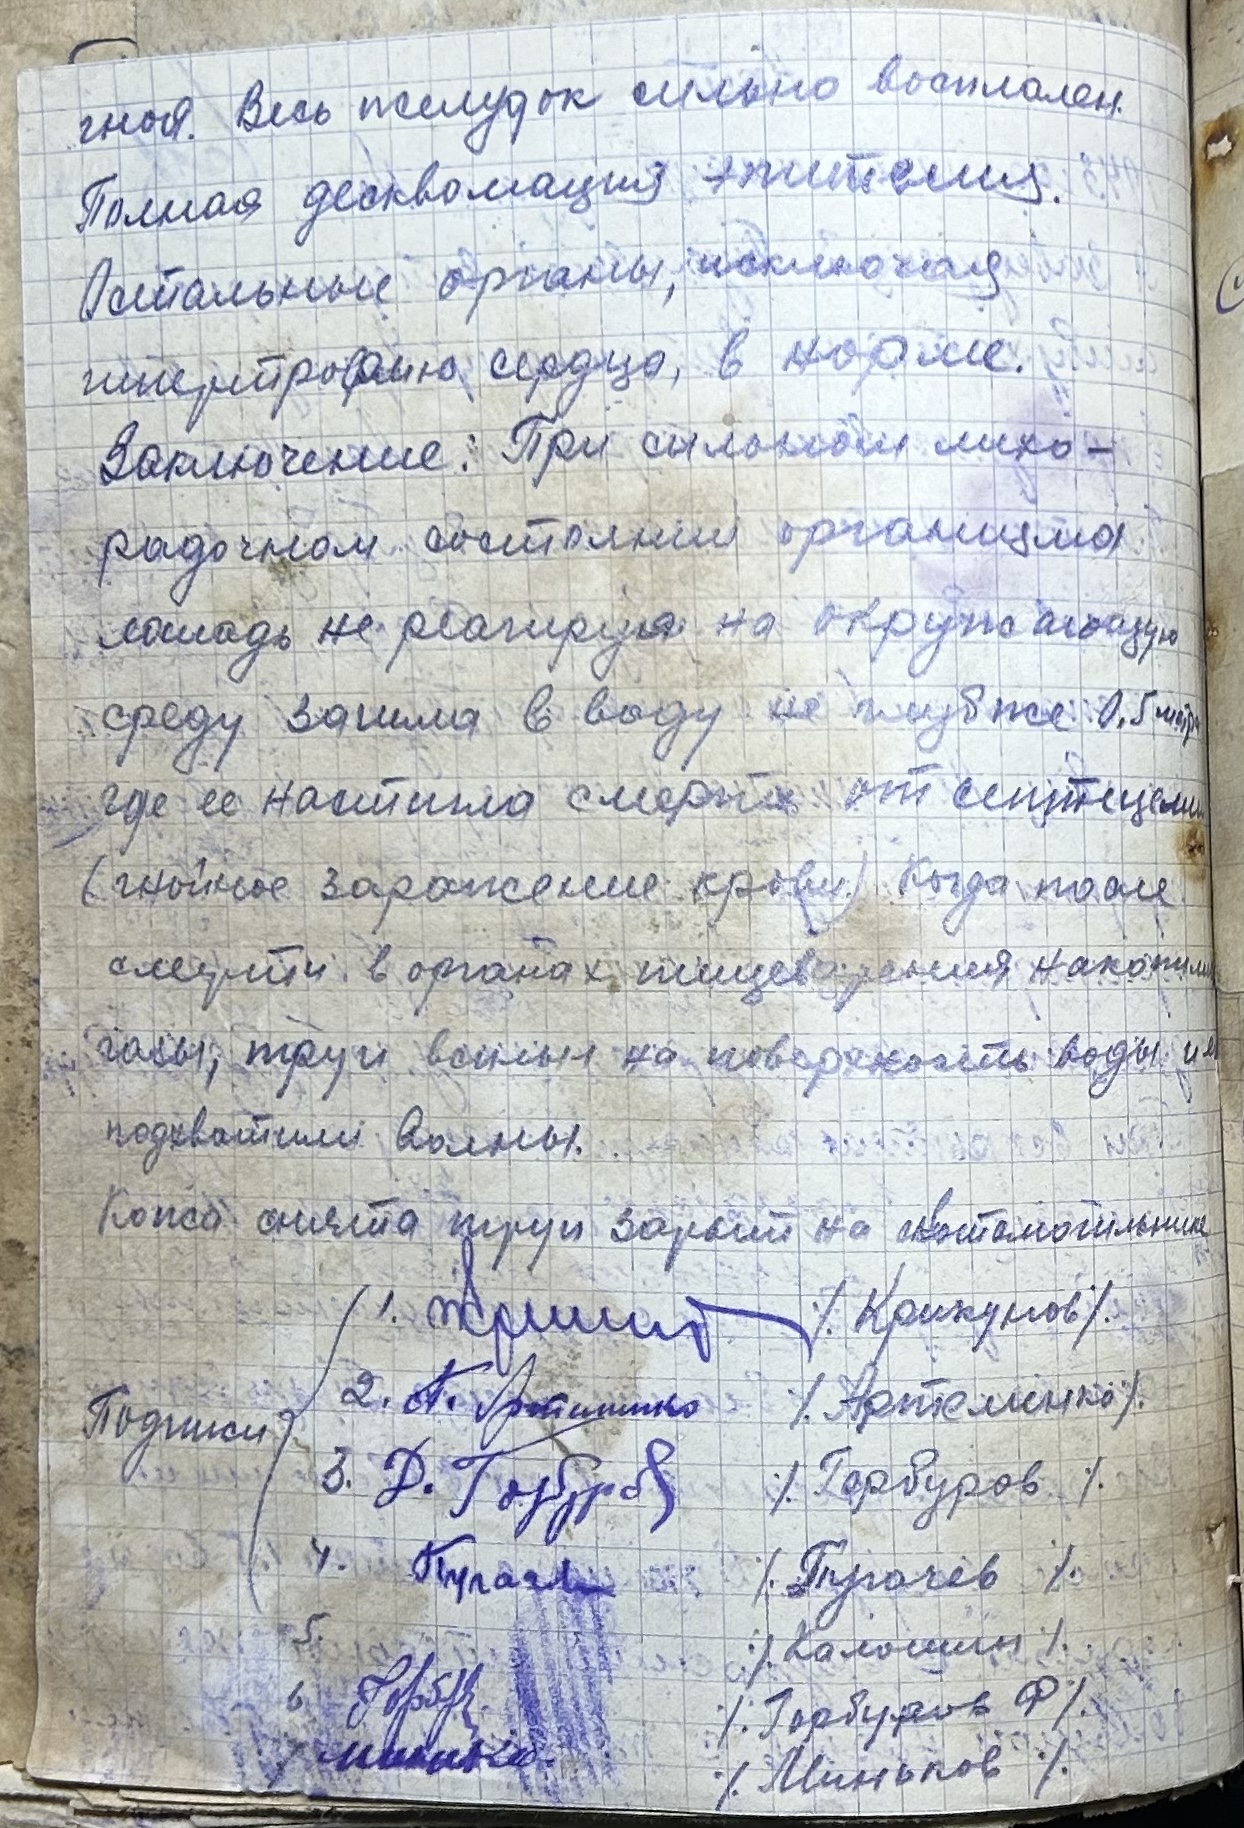 гной. Весь желудок сильно воспален.
Полная десквомация эпителия.
Остальные органы, исключая
гипертрофию сердца, в норме.
Заключение: При сильном лихо-
радочном состоянии организма
лошадь не реагируя на окружающую
среду зашла в воду не глубже 0.5 метра
где ее настигла смерть от септицемии
(гнойное заражение крови) Когда после
смерти в органах пищеварения накопились
газы, труп всплыл на поверхность воды и его
подхватили волны.
Кожа снята труп зарыт на скотомогильнике
1. /. Крикунов /.
2. А. Артеменко /. Артеменко /.
Подписи 3. Д. Горбуров /. Горбуров /.
4. Пугачев /. Пугачев /.
5. /. Калошин /.
6. Горбур. /. Горбуров Ф /.
7 Миньков. /. Миньков /.